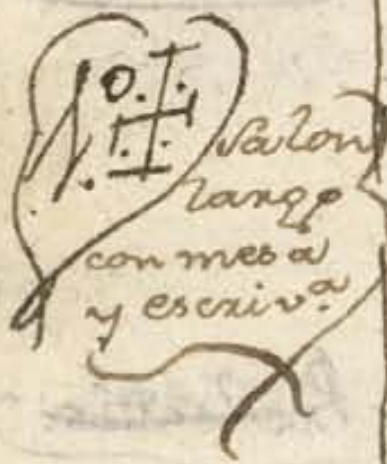 1º
Salon
largo
con mesa
y escriv.ª